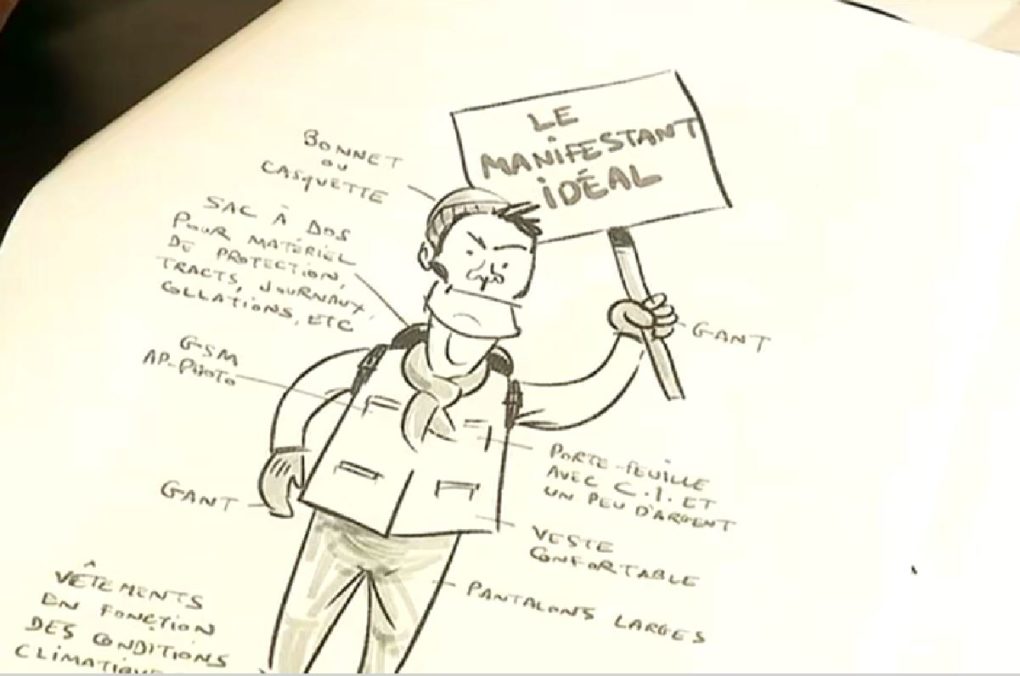 LE
MANIFESTANT
IDÉAL
BONNET
OU
CASQUETTE
SAC À DOS
POUR MATÉRIEL
DE PROTECTION,
TRACTS, JOURNAUX,
COLLATIONS, ETC
GSM
AP-PHOTO
GANT
GANT
PORTE-FEUILLE
AVEC C.I. ET
UN PEU D'ARGENT
VESTE
CONFORTABLE
PANTALONS LARGES
VÊTEMENTS
EN FONCTION
DES CONDITIONS
CLIMATIQUE